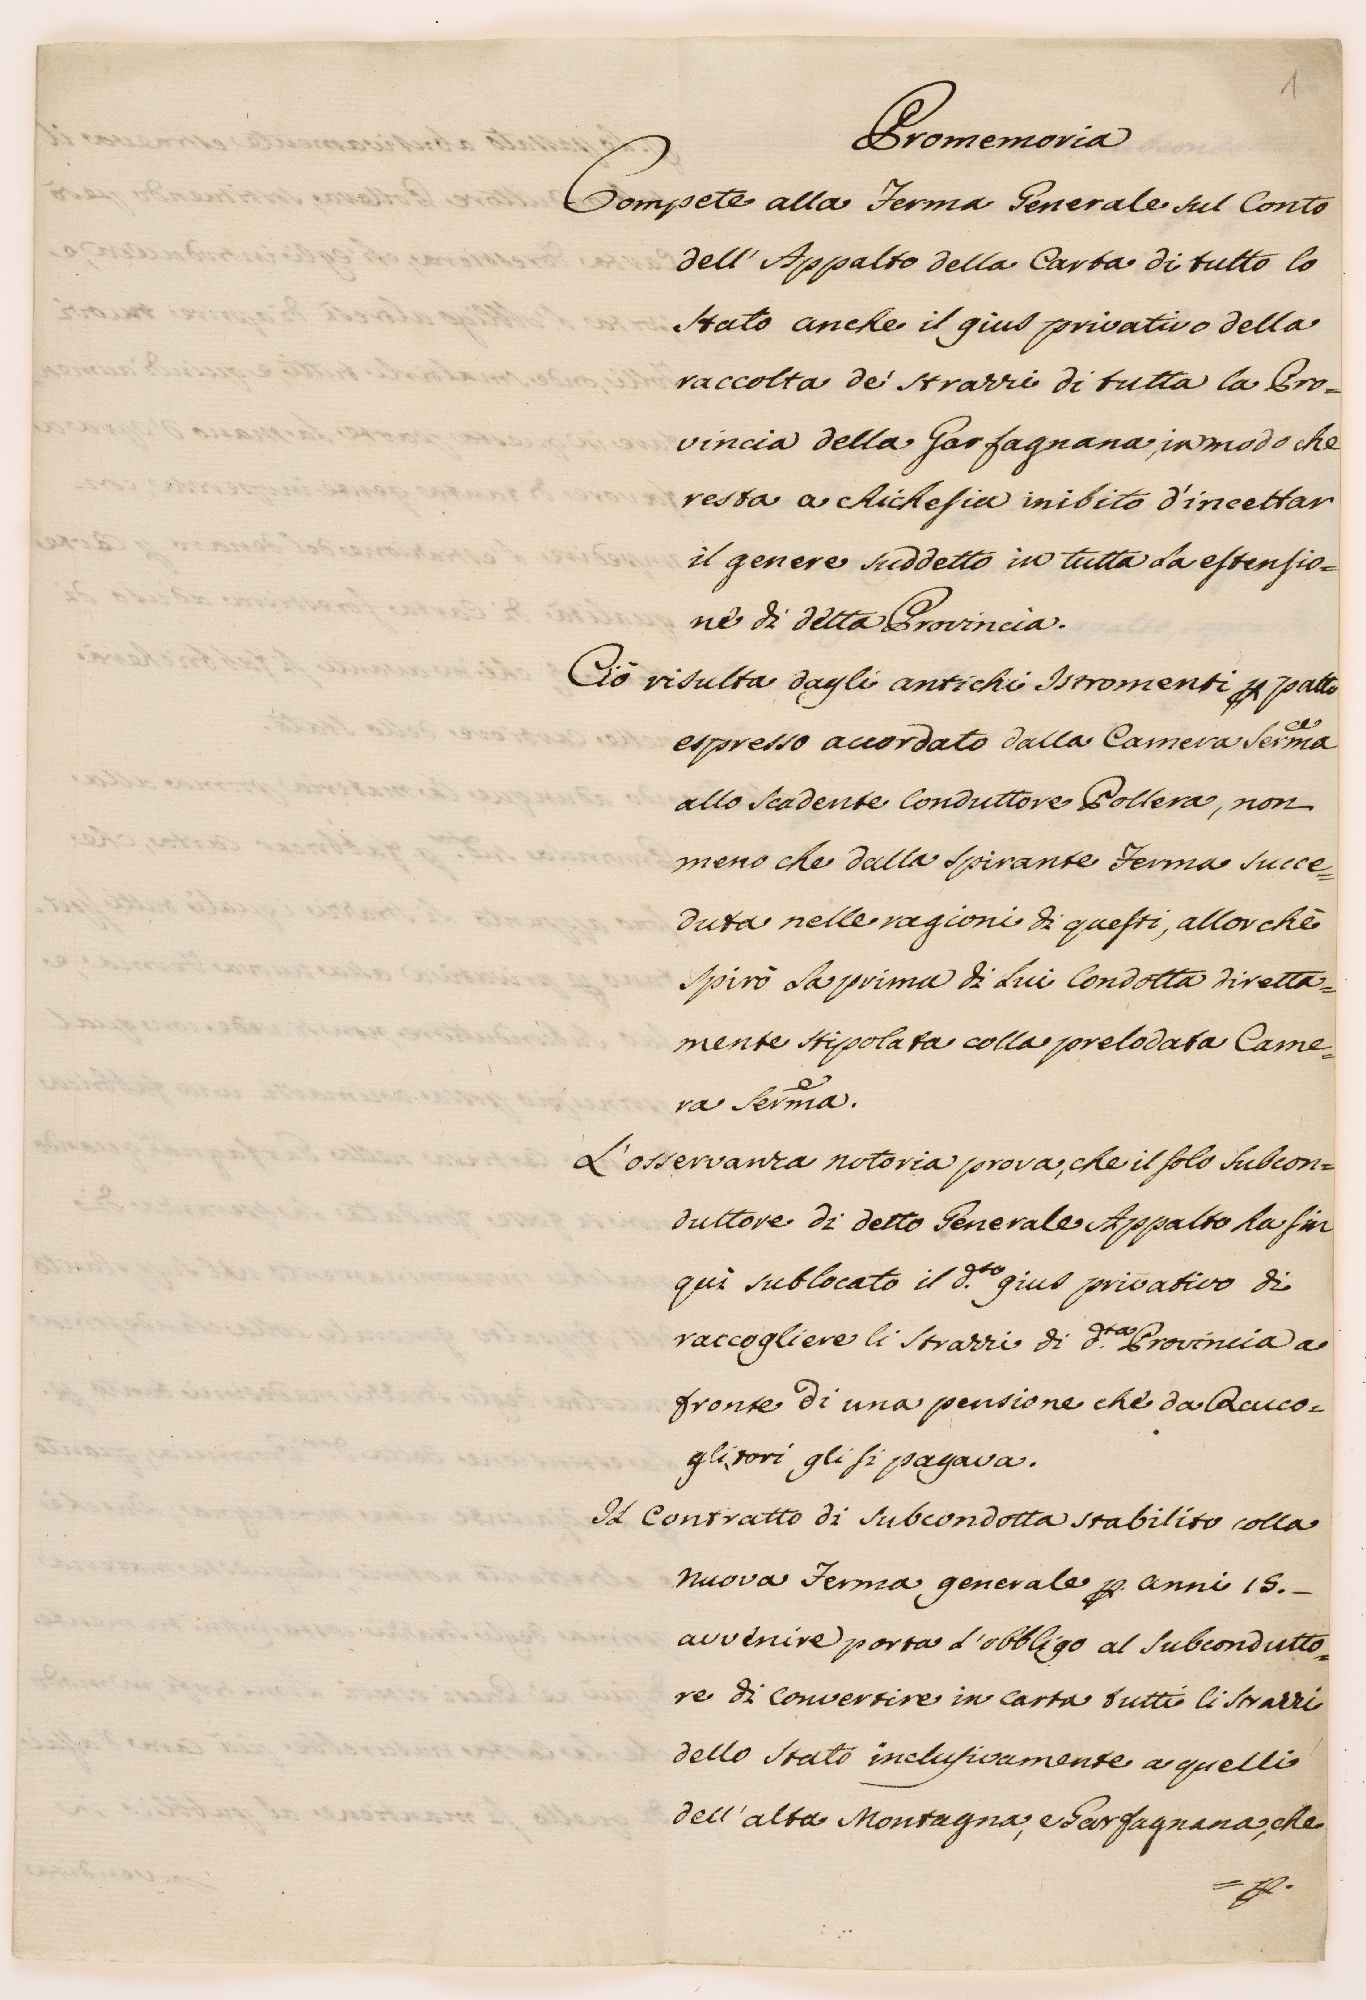 1
Promemoria
Compete alla Ferma Generale sul Conto
dell' Appalto della Carta di tutto lo
Stato anche il gius privativo della
raccolta de' strazzi di tutta la Pro=
vincia della Garfagnana, in modo che
resta a chichesia inibito d'incettar
il genere suddetto in tutta la estensio=
ne di detta Provincia.
Ciò risulta dagli antichi Istromenti p patto
espresso accordato dalla Camera Serma
allo scadente Conduttore Pollera, non
meno che dalla spirante Ferma succe=
duta nelle ragioni di questi, allorchè
spirò la prima di lui Condotta diretta=
mente stipolata colla prelodata Came=
ra Serma.
L'osservanza notoria prova, che il solo Subcon=
duttore di detto Generale Appalto ha sin
quì sublocato il d.to gius privativo di
raccogliere li Strazzi di d.ta Provincia a
fronte di una pensione che da Racco=
glitori gli si pagava.
Il Contratto di Subcondotta stabilito colla
nuova Ferma generale p. anni 15.–
avvenire porta l'obbligo al Subcondutto=
re di convertire in carta tutti li Strazzi
dello Stato inclusivamente a quelli
dell'alta Montagna, e Garfagnana, che
= p.